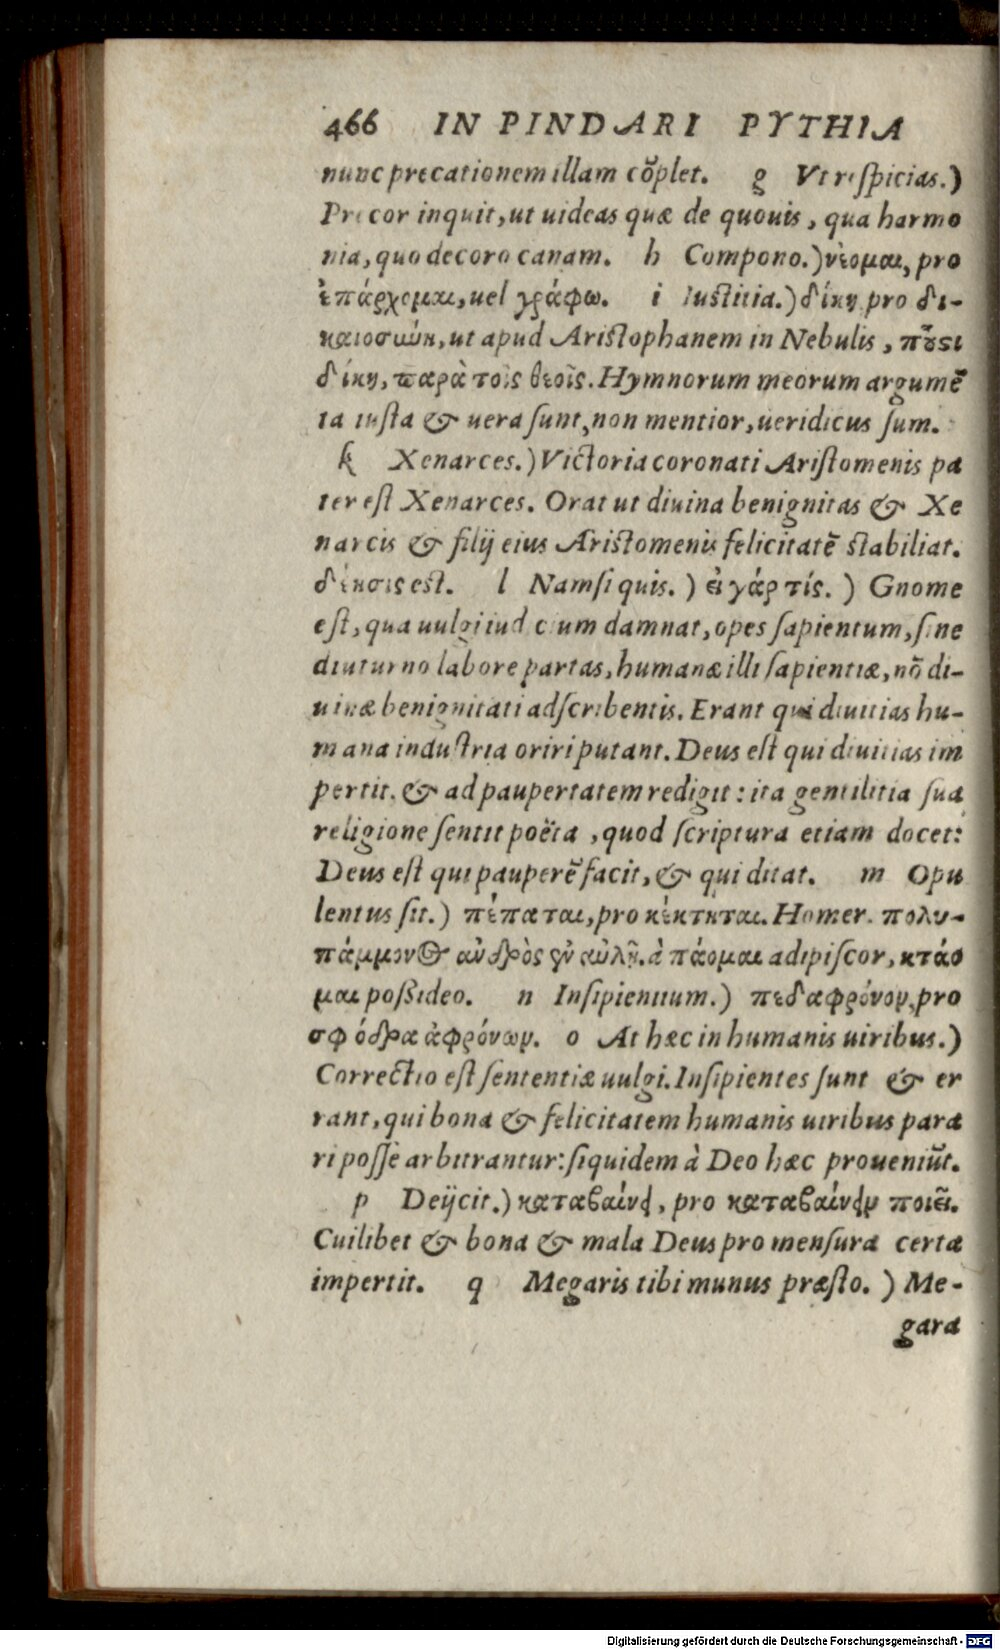 466 IN PINDARI PYTHIA
nunc precationem illam cõplet. g Vt respicias.)
Precor inquit, ut uideas quæ de quouis, qua harmo
nia, quo decoro canam. h Compono.) νέομαι, pro
ἐπάρχομαι, uel γράφω. i Iustitia.) δίκη pro δι-
καιοσύνη, ut apud Aristophanem in Nebulis, ποῦ ἐςι
δίκη, παρὰ τοῖς θεοῖς. Hymnorum meorum argumẽ
ta iusta & uera sunt, non mentior, ueridicus sum.
k Xenarces.) Victoria coronati Aristomenis pa
ter est Xenarces. Orat ut diuina benignitas & Xe
narcis & filij eius Aristomenis felicitatẽ stabiliat.
δέησις est. l Nam si quis.) εἰ γάρ τίς.) Gnome
est, qua uulgi iudicium damnat, opes sapientum, sine
diuturno labore partas, humanæ illi sapientiæ, nõ di-
uinæ benignitati adscribentis. Erant qui diuitias hu-
mana industria oriri putant. Deus est qui diuitias im
pertit, & ad paupertatem redigit: ita gentilitia sua
religione sentit poëta, quod scriptura etiam docet:
Deus est qui pauperẽ facit, & qui ditat. m Opu
lentus sit.) πέπαται, pro κέκτηται. Homer. πολυ-
πάμμονος ἀνδρὸς ἐν αὐλῇ. à πάομαι adipiscor, κτάο
μαι possideo. n Insipientium.) πεδαφρόνον, pro
σφόδρα ἀφρόνων. o At hæc in humanis uiribus.)
Correctio est sententiæ uulgi. Insipientes sunt & er
rant, qui bona & felicitatem humanis uiribus para
ri posse arbitrantur: siquidem à Deo hæc proueniũt.
p Deijcit.) καταβαίνει, pro καταβαίνειν ποιεῖ.
Cuilibet & bona & mala Deus pro mensura certa
impertit. q Megaris tibi munus præsto.) Me-
gara
Digitalisierung gefördert durch die Deutsche Forschungsgemeinschaft - DFG